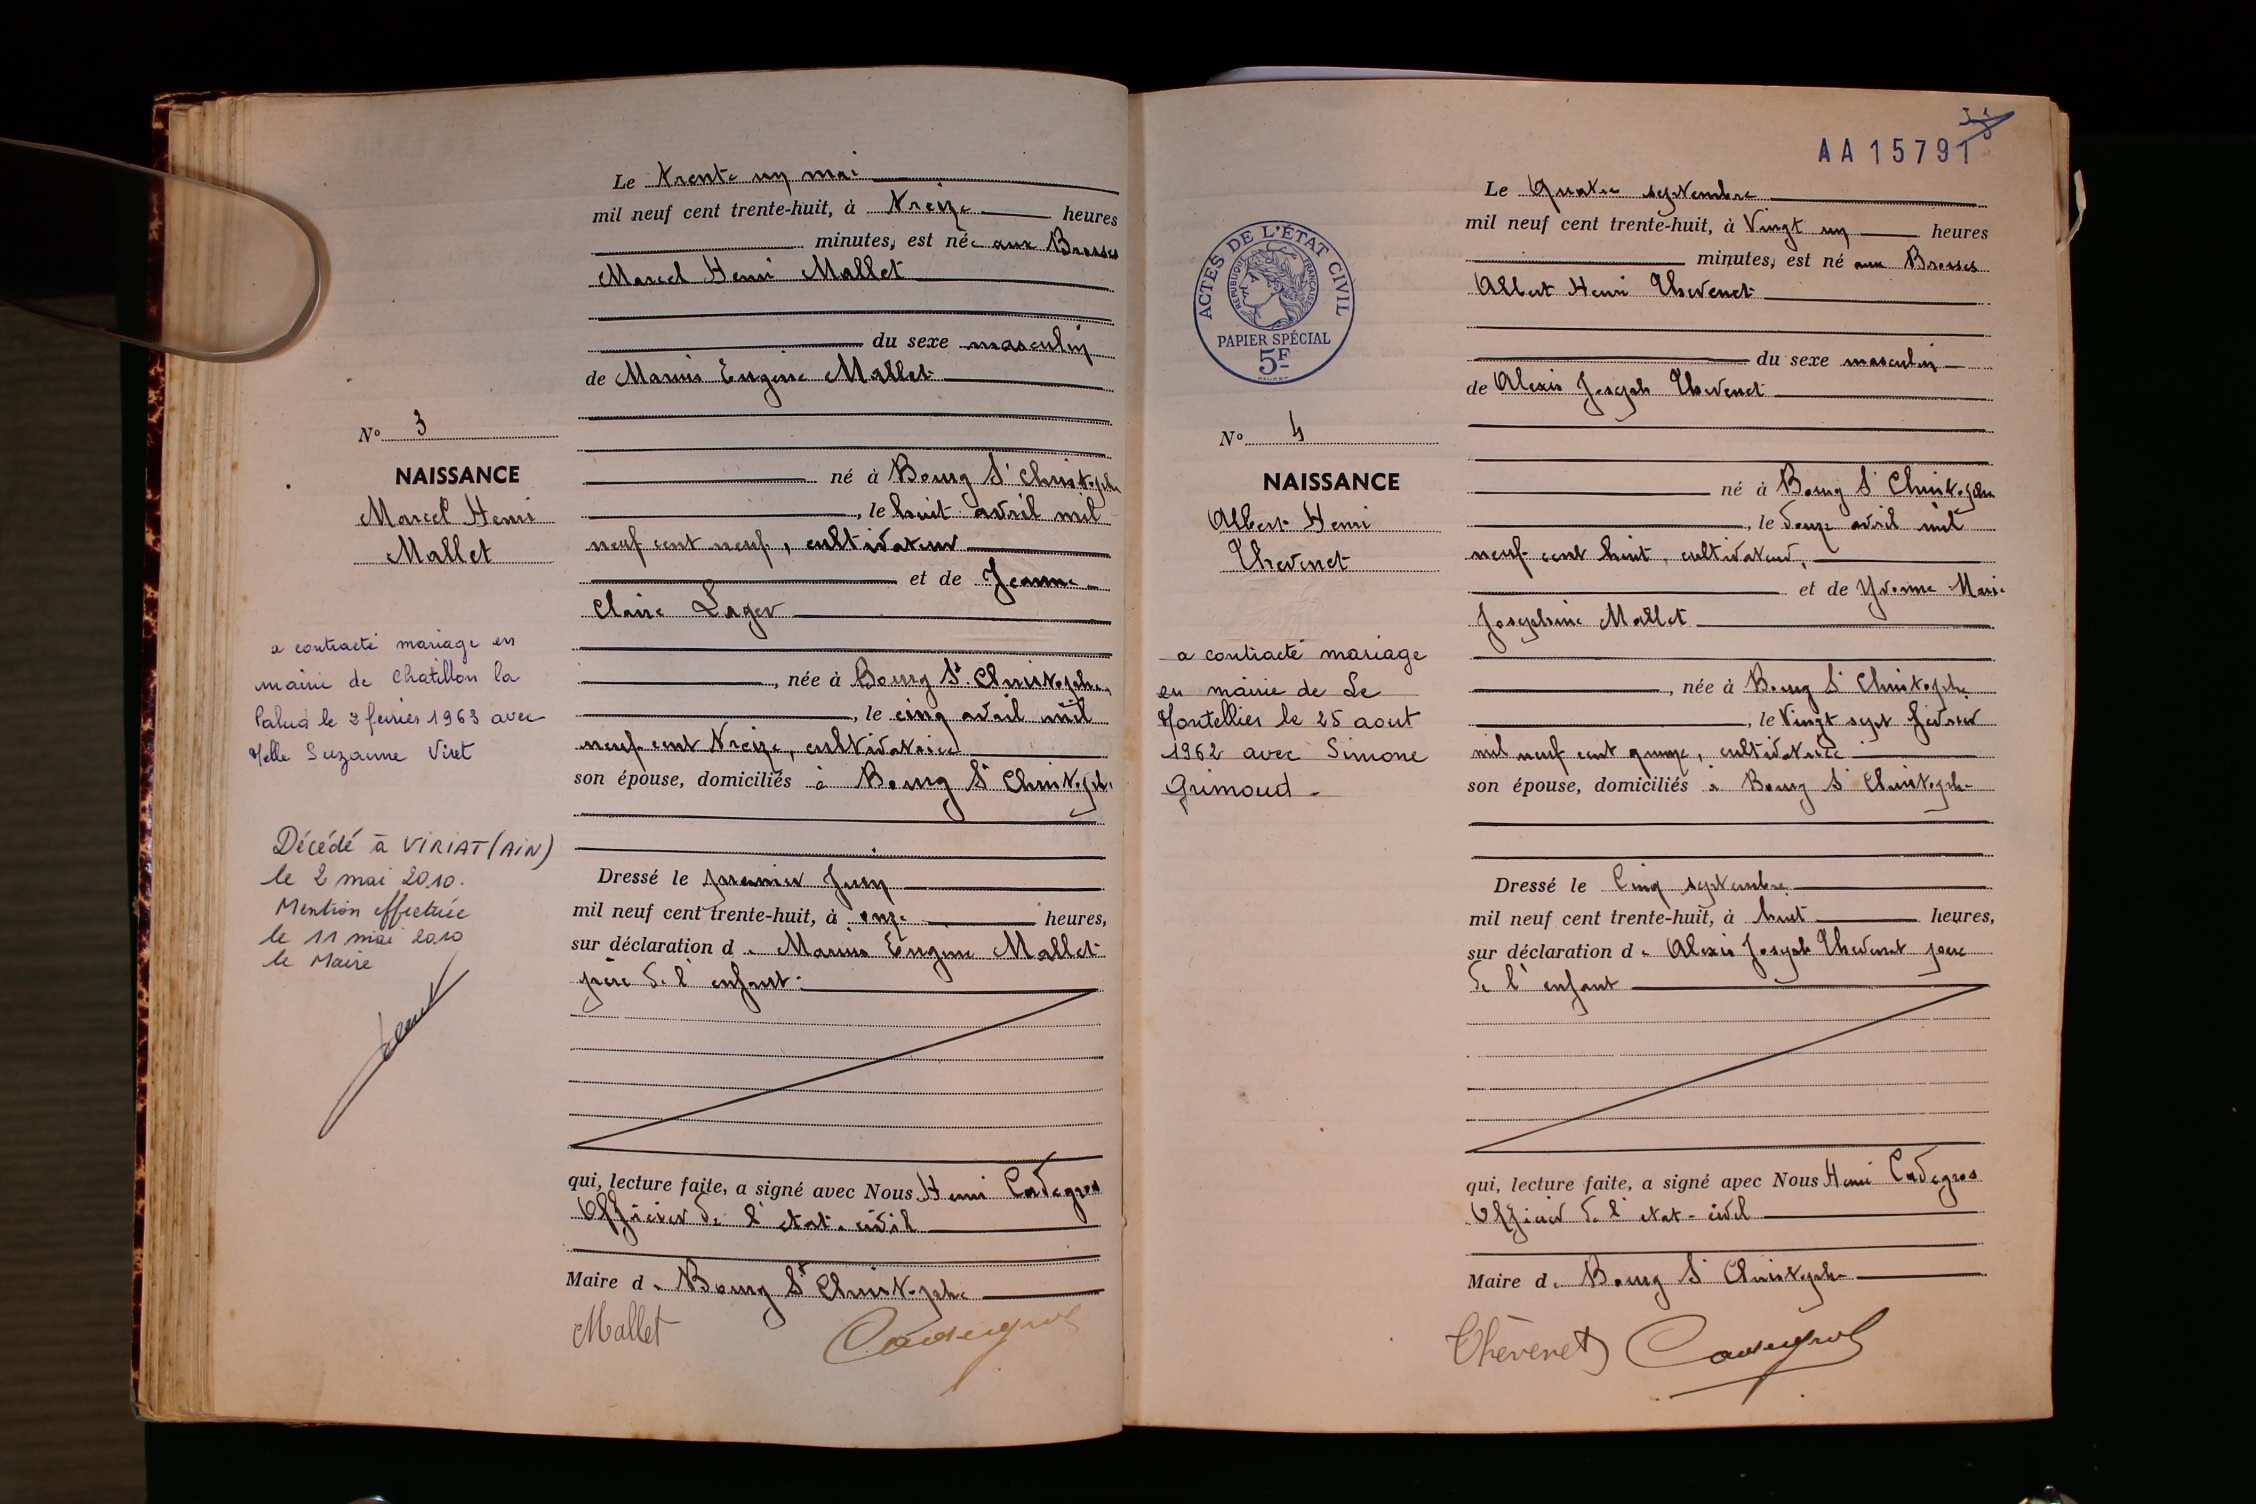 Le trente un mai
mil neuf cent trente-huit, à treize heures
minutes, est né aux Brosses
Marcel Henri Mallet
du sexe masculin
de Marius Eugène Mallet
N° 3
NAISSANCE
Marcel Henri
Mallet
né à Bourg St Christophe
, le huit avril mil
neuf cent neuf, cultivateur
et de Jeanne
Claire Lager
, née à Bourg St. Christophe
, le cinq avril mil
neuf cent treize, cultivatrice
son épouse, domiciliés à Bourg St Christophe
a contracté mariage en
mairie de Chatillon la
Palud le 2 février 1963 avec
Melle Suzanne Viret
Décédé à VIRIAT (AIN)
le 2 mai 2010.
Mention effectuée
le 11 mai 2010
le Maire
Dressé le premier Juin
mil neuf cent trente-huit, à onze heures,
sur déclaration de Marius Eugène Mallet
père de l'enfant
qui, lecture faite, a signé avec Nous Henri Cadegros
Officier de l'etat-civil
Maire de Bourg St Christophe
Mallet
AA 15791
Le Quatre septembre
mil neuf cent trente-huit, à Vingt un heures
minutes, est né aux Brosses
Albert Henri Thevenet
du sexe masculin
de Alexis Joseph Thevenet
ACTES DE L'ÉTAT CIVIL
RÉPUBLIQUE FRANÇAISE
PAPIER SPÉCIAL
5F
N° 4
NAISSANCE
Albert Henri
Thevenet
né à Bourg St Christophe
, le douze avril mil
neuf cent huit, cultivateur,
et de Yvonne Marie
Josephine Mallet
, née à Bourg St Christophe
, le Vingt sept février
mil neuf cent quinze, cultivatrice
son épouse, domiciliés à Bourg St Christophe
a contracté mariage
en mairie de Le
Montellier le 25 aout
1962 avec Simone
Grimoud.
Dressé le Cinq septembre
mil neuf cent trente-huit, à huit heures,
sur déclaration de Alexis Joseph Thevenet père
de l'enfant
qui, lecture faite, a signé avec Nous Henri Cadegros
Officier de l'etat-civil
Maire de Bourg St Christophe
Thévenet Cadegros